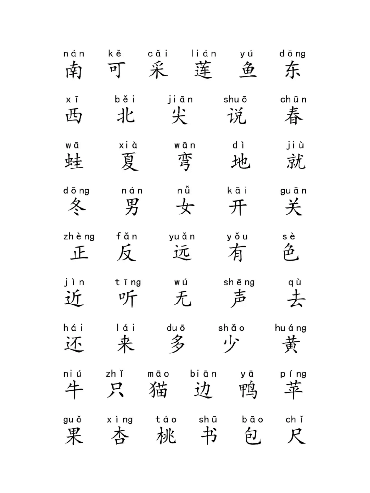 nán kě cǎi lián yú dōng
南 可 采 莲 鱼 东
xī běi jiān shuō chūn
西 北 尖 说 春
wā xià wān dì jiù
蛙 夏 弯 地 就
dōng nán nǚ kāi guān
冬 男 女 开 关
zhèng fǎn yuǎn yǒu sè
正 反 远 有 色
jìn tīng wú shēng qù
近 听 无 声 去
hái lái duō shǎo huáng
还 来 多 少 黄
niú zhǐ māo biān yā píng
牛 只 猫 边 鸭 苹
guǒ xìng táo shū bāo chǐ
果 杏 桃 书 包 尺